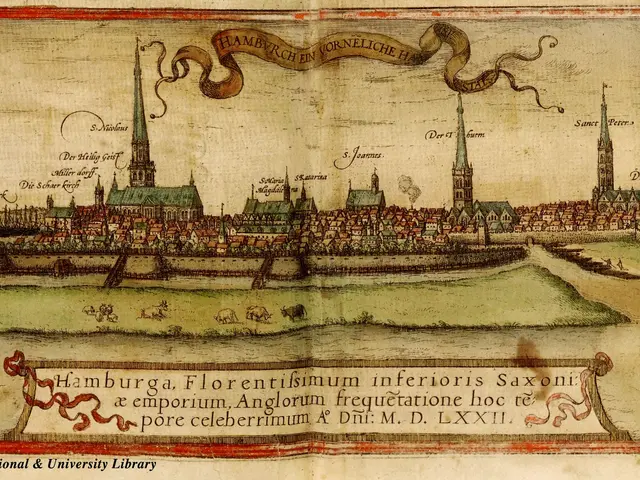 HAMBVRCH EIN VORNELICHE HA
S. Nicolaus
Der Hellig Geist
Miller dorff.
Die Schaer kirch
S. Maria
Magdalena
S. Katarina
S. Joannes.
Der Thurm
Sanct Peter.
D
Hamburga, Florentiſsimum inferioris Saxoni:
æ emporium, Anglorum frequẽtatione hoc tẽ,
pore celeberrimum A° Dñi: M. D. LXXII.
ional & University Library